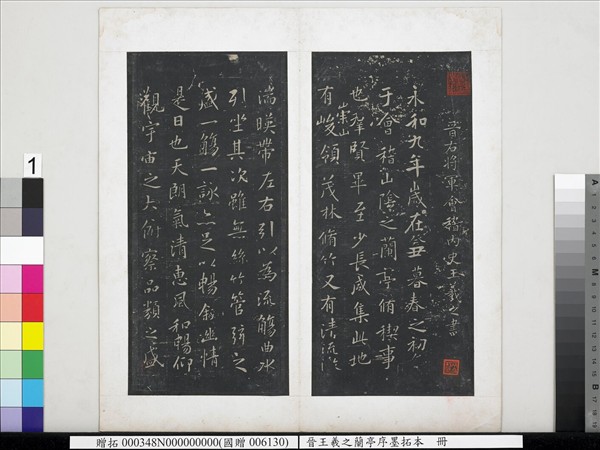 晉右將軍會稽內史王羲之書
永和九年歲在癸丑暮春之初會
于會稽山陰之蘭亭脩禊事
也羣賢畢至少長咸集此地
有崇山峻領茂林脩竹又有清流激
湍暎帶左右引以為流觴曲水
列坐其次雖無絲竹管弦之
盛一觴一詠亦足以暢敘幽情
是日也天朗氣清惠風和暢仰
觀宇宙之大俯察品類之盛
1
A
M
B
贈拓 000348N000000000(國贈 006130)
晉王羲之蘭亭序墨拓本 冊